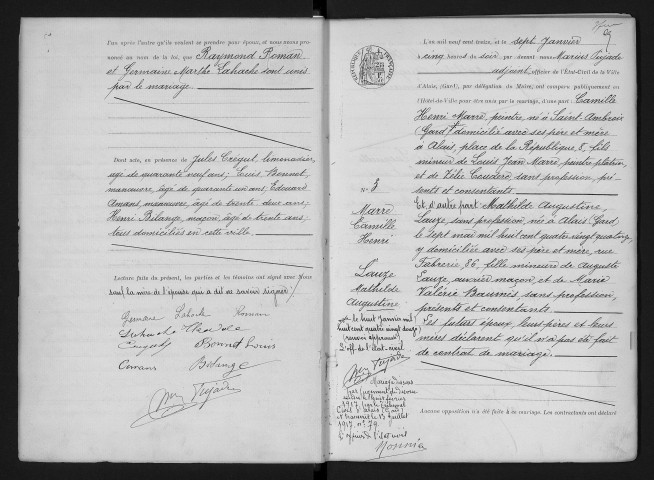 l'un après l'autre qu'ils veulent se prendre pour époux, et nous avons pro-
noncé au nom de la loi, que Raymond Roman
et Germaine Marthe Lahache sont unis
par le mariage.
Dont acte, en présence de Jules Crégut, limonadier,
âgé de quarante neuf ans; Louis Bonnet,
manœuvre, âgé de quarante un ans; Edouard
Amans, manœuvre, âgé de trente deux ans;
Henri Belange, maçon, âgé de trente ans,
tous domiciliés en cette ville.
Lecture faite du présent, les parties et les témoins ont signé avec Nous
sauf la mère de l'épouse qui a dit ne savoir signer.
Germaine Lahache Roman
Lahache
Bonnet Louis
Amans Belange
Pujade
L'an mil neuf cent treize, et le sept Janvier
à cinq heures du soir par devant nous Marius Pujade
adjoint, officier de l'État-Civil de la Ville
d'Alais, (Gard), par délégation du Maire, ont comparu publiquement en
l'Hôtel-de-Ville pour être unis par le mariage, d'une part: Camille
Henri Marre, peintre, né à Saint-Ambroix
(Gard) domicilié avec ses père et mère
à Alais, place de la République 8, fils
mineur de Louis Jean Marre, peintre plâtrier,
et de Zélie sans profession, pré-
sents et consentants.
Et, d'autre part: Mathilde Augustine
Lauze, sans profession, née à Alais, Gard,
le sept mai mil huit cent quatre vingt quatorze,
y domiciliée avec ses père et mère, rue
Fabrerie 26, fille mineure de Auguste
Lauze ouvrier maçon, et de Marie
Valérie sans profession,
présents et consentants.
Les futurs époux, leurs pères et leurs
mères déclarent qu'il n'a pas été fait
de contrat de mariage.
Aucune opposition n'a été faite à ce mariage. Les contractants ont déclaré
N° 3
Marre
Camille
Henri
Lauze
Mathilde
Augustine
le huit Janvier mil
huit cent quatre vingt douze
(renvoi approuvé)
L'off. de l'état-civil
Pujade
Mariage dissous
par jugement de divorce
rendu le huit février
1917 par le tribunal
Civil d'Alais (Gard)
et transcrit le 13 Juillet
1917. n° 79.
L'officier de l'état civil